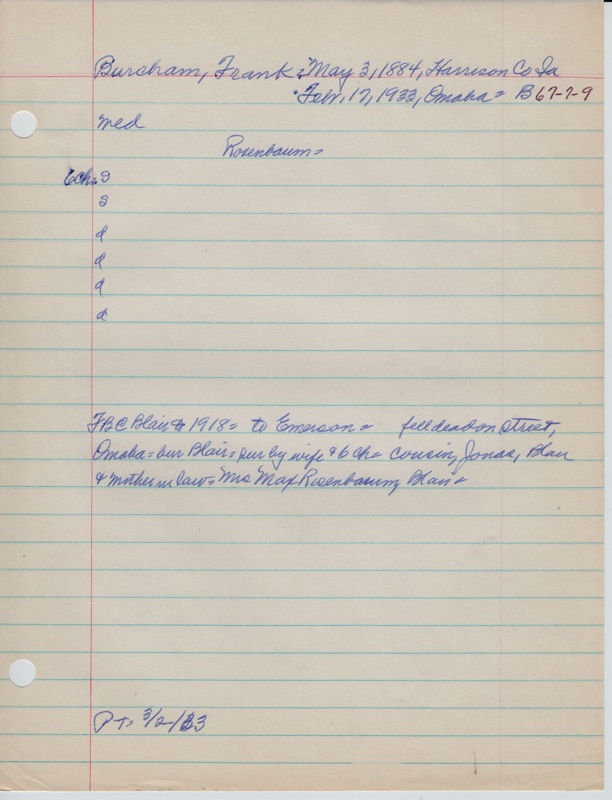 Burcham, Frank: May 3, 1884, Harrison Co Ia
Feb, 17, 1933, Omaha = B 67-7-9
med
Rosenbaum =
6 ch = s
s
d
d
d
d
FBC Blair to 1918 = to Emerson = fell dead on street,
Omaha = bur Blair = sur by wife & 6 ch = cousin, Jonas, Blair
& mother in law = Mrs Max Rosenbaum, Blair =
PT = 3/2/33